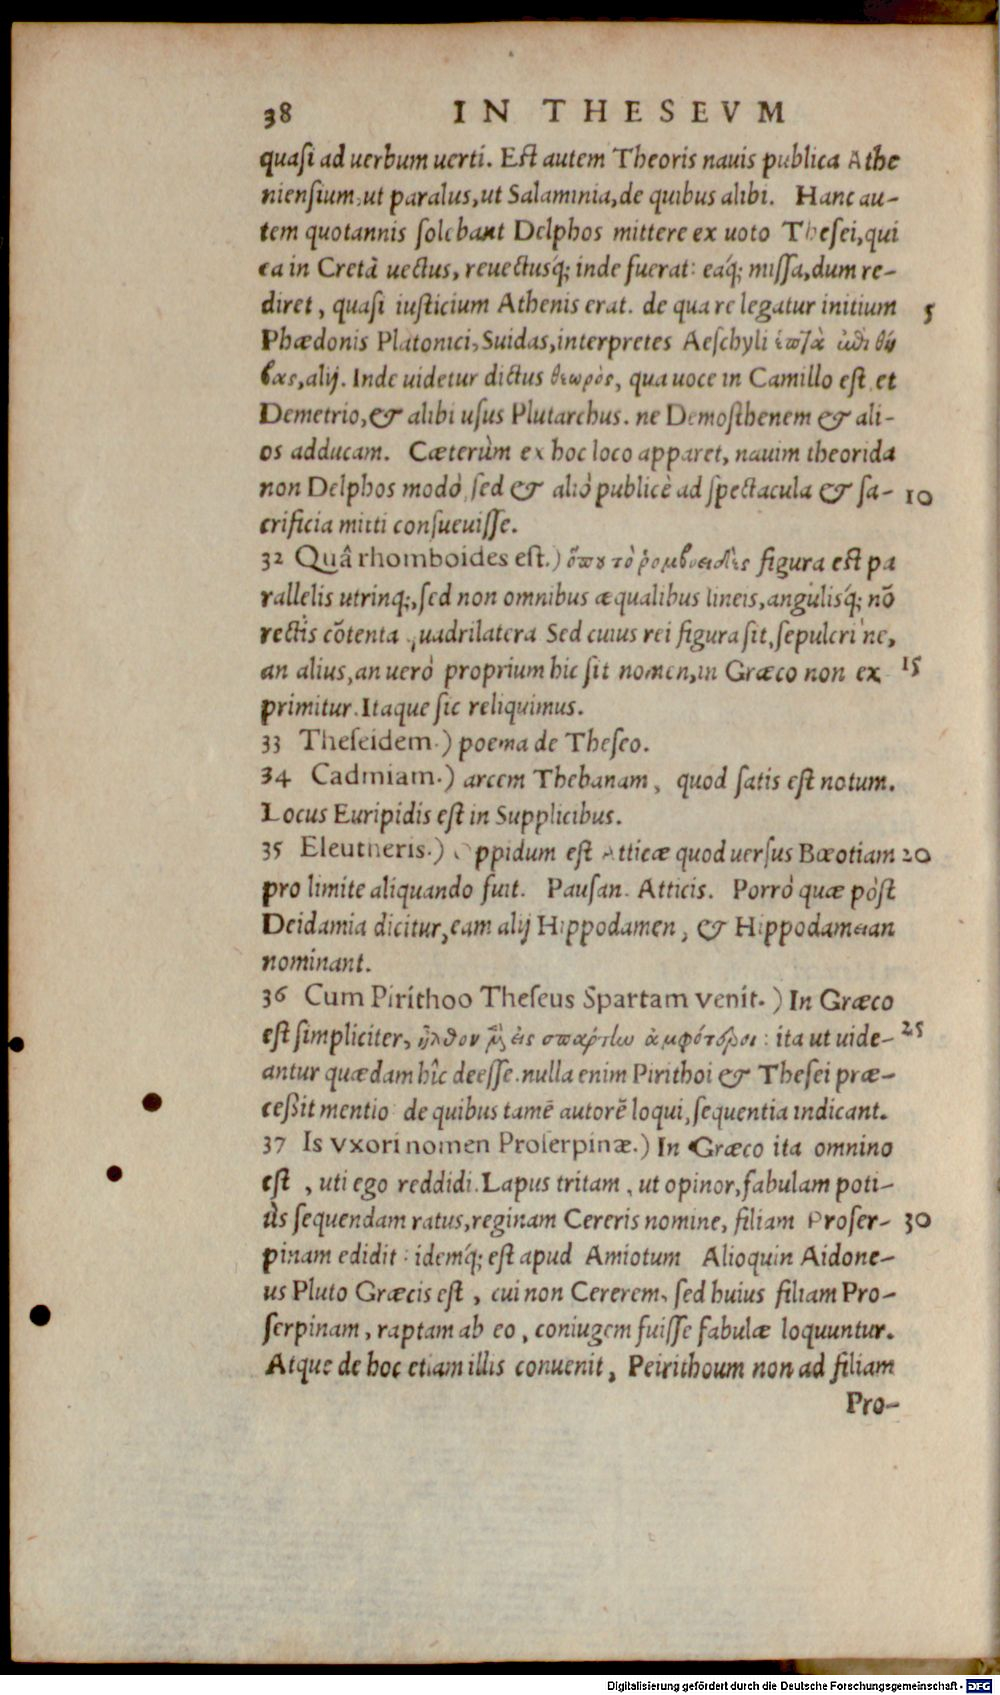 38 IN THESEVM
quasi ad uerbum uerti. Est autem Theoris nauis publica Athe
niensium, ut paralus, ut Salaminia, de quibus alibi. Hanc au-
tem quotannis solebant Delphos mittere ex uoto Thesei, qui
ea in Cretã uectus, reuectusq́; inde fuerat: eaq́; missa, dum re-
diret, quasi iusticium Athenis erat. de qua re legatur initium 5
Phædonis Platonici, Suidas, interpretes Aeschyli ἑπτὰ ἐπὶ θή
βας, alij. Inde uidetur dictus θεωρὸς, qua uoce in Camillo est et
Demetrio, & alibi usus Plutarchus. ne Demosthenem & ali-
os adducam. Cæterùm ex hoc loco apparet, nauim theorida
non Delphos modò, sed & aliò publicè ad spectacula & sa- 10
crificia mitti consueuisse.
32 Quâ rhomboides est.) ὅπου τὸ ῥομβοειδὲς figura est pa
rallelis utrinq;, sed non omnibus æqualibus lineis, angulisq́; nõ
rectis cõtenta quadrilatera Sed cuius rei figura sit, sepulcri ne,
an alius, an uerò proprium hic sit nomen, in Græco non ex 15
primitur. Itaque sic reliquimus.
33 Theseidem.) poema de Theseo.
34 Cadmiam.) arcem Thebanam, quod satis est notum.
Locus Euripidis est in Supplicibus.
35 Eleutheris.) Oppidum est Atticæ quod uersus Bœotiam 20
pro limite aliquando fuit. Pausan. Atticis. Porrò quæ pòst
Deidamia dicitur, eam alij Hippodamen, & Hippodameian
nominant.
36 Cum Pirithoo Theseus Spartam venit.) In Græco
est simpliciter, ἦλθον μὲν εἰς σπάρτην ἀμφότεροι: ita ut uide- 25
antur quædam hîc deesse. nulla enim Pirithoi & Thesei præ-
ceßit mentio de quibus tamē autorē loqui, sequentia indicant.
37 Is vxori nomen Proserpinæ.) In Græco ita omnino
est, uti ego reddidi. Lapus tritam, ut opinor, fabulam poti-
ùs sequendam ratus, reginam Cereris nomine, filiam Proser- 30
pinam edidit: idemq́; est apud Amiotum Alioquin Aidone-
us Pluto Græcis est, cui non Cererem, sed huius filiam Pro-
serpinam, raptam ab eo, coniugem fuisse fabulæ loquuntur.
Atque de hoc etiam illis conuenit, Peirithoum non ad filiam
Pro-
Digitalisierung gefördert durch die Deutsche Forschungsgemeinschaft - DFG